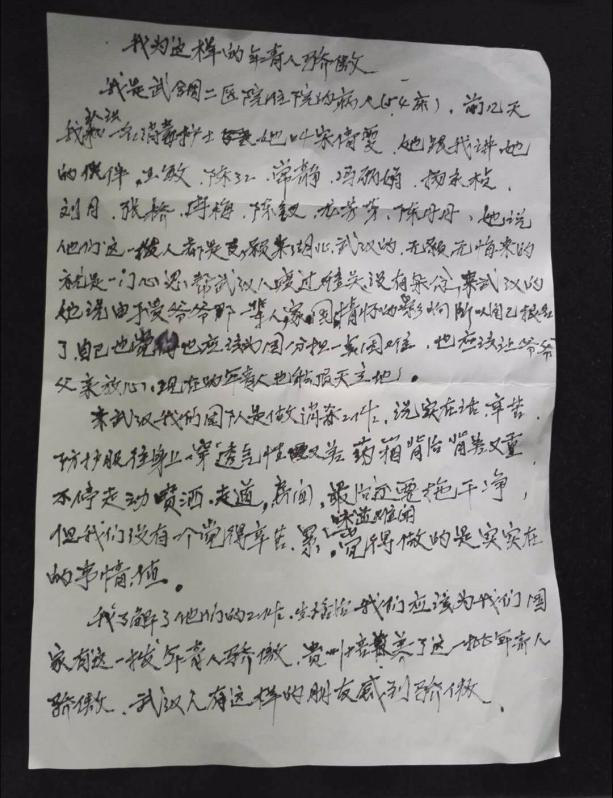 我为这样的年青人骄傲
我是武钢二医院住院的病人(54床),前几天
我认识一名消毒护士 她叫宋倩雯,她跟我讲她
的伙伴,王敏、陈红、常静、冯丽娟、杨永校、
刘月、张桥、冉梅、陈钗、龙芳芳、陈丹丹,她说
他们这一拨人都是自愿来湖北武汉的,无怨无悔来的
就是一门心思,帮武汉人度过难关没有条件,来武汉的
她说由于受爷爷那一辈人家国情怀的影响所以自己报名
了,自己也觉得也应该为国分担一点困难,也应该让爷爷
父亲放心,现在的年青人也能顶天立地。
来武汉我的团队是做消杀工作,说实在话辛苦,
防护服往身上一穿透气性又差 药箱背后背着又重
不停走动喷洒,走道,房间,最后还要拖干净,
味道难闻
但我们没有一个觉得辛苦、累,觉得做的是实实在在
的事情,值。
我了解了他们的工作、生活后我们应该为我们国
家有这一拨年青人骄傲,贵州培养了这一批年青人
骄傲,武汉人有这样的朋友感到骄傲。